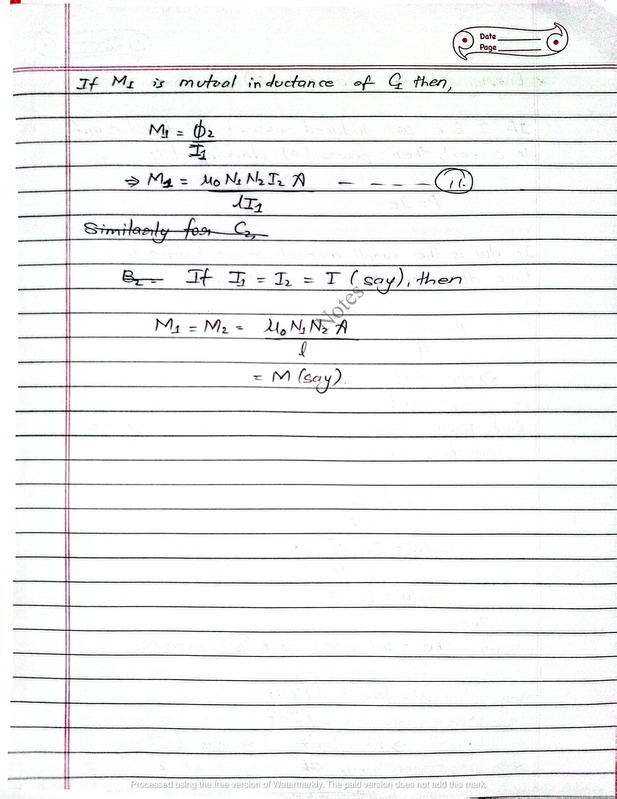 Date
Page
If M1 is mutual inductance of C1 then,
M1 = ϕ2
I1
⇒ M1 = μ0 N1 N2 I2 A - - - - (ii.
lI1
Similarly for C2,
B2 = If I1 = I2 = I (say), then
Notes
M1 = M2 = μ0 N1 N2 A
l
= M (say).
Processed using the free version of Watermarkly. The paid version does not add this mark.